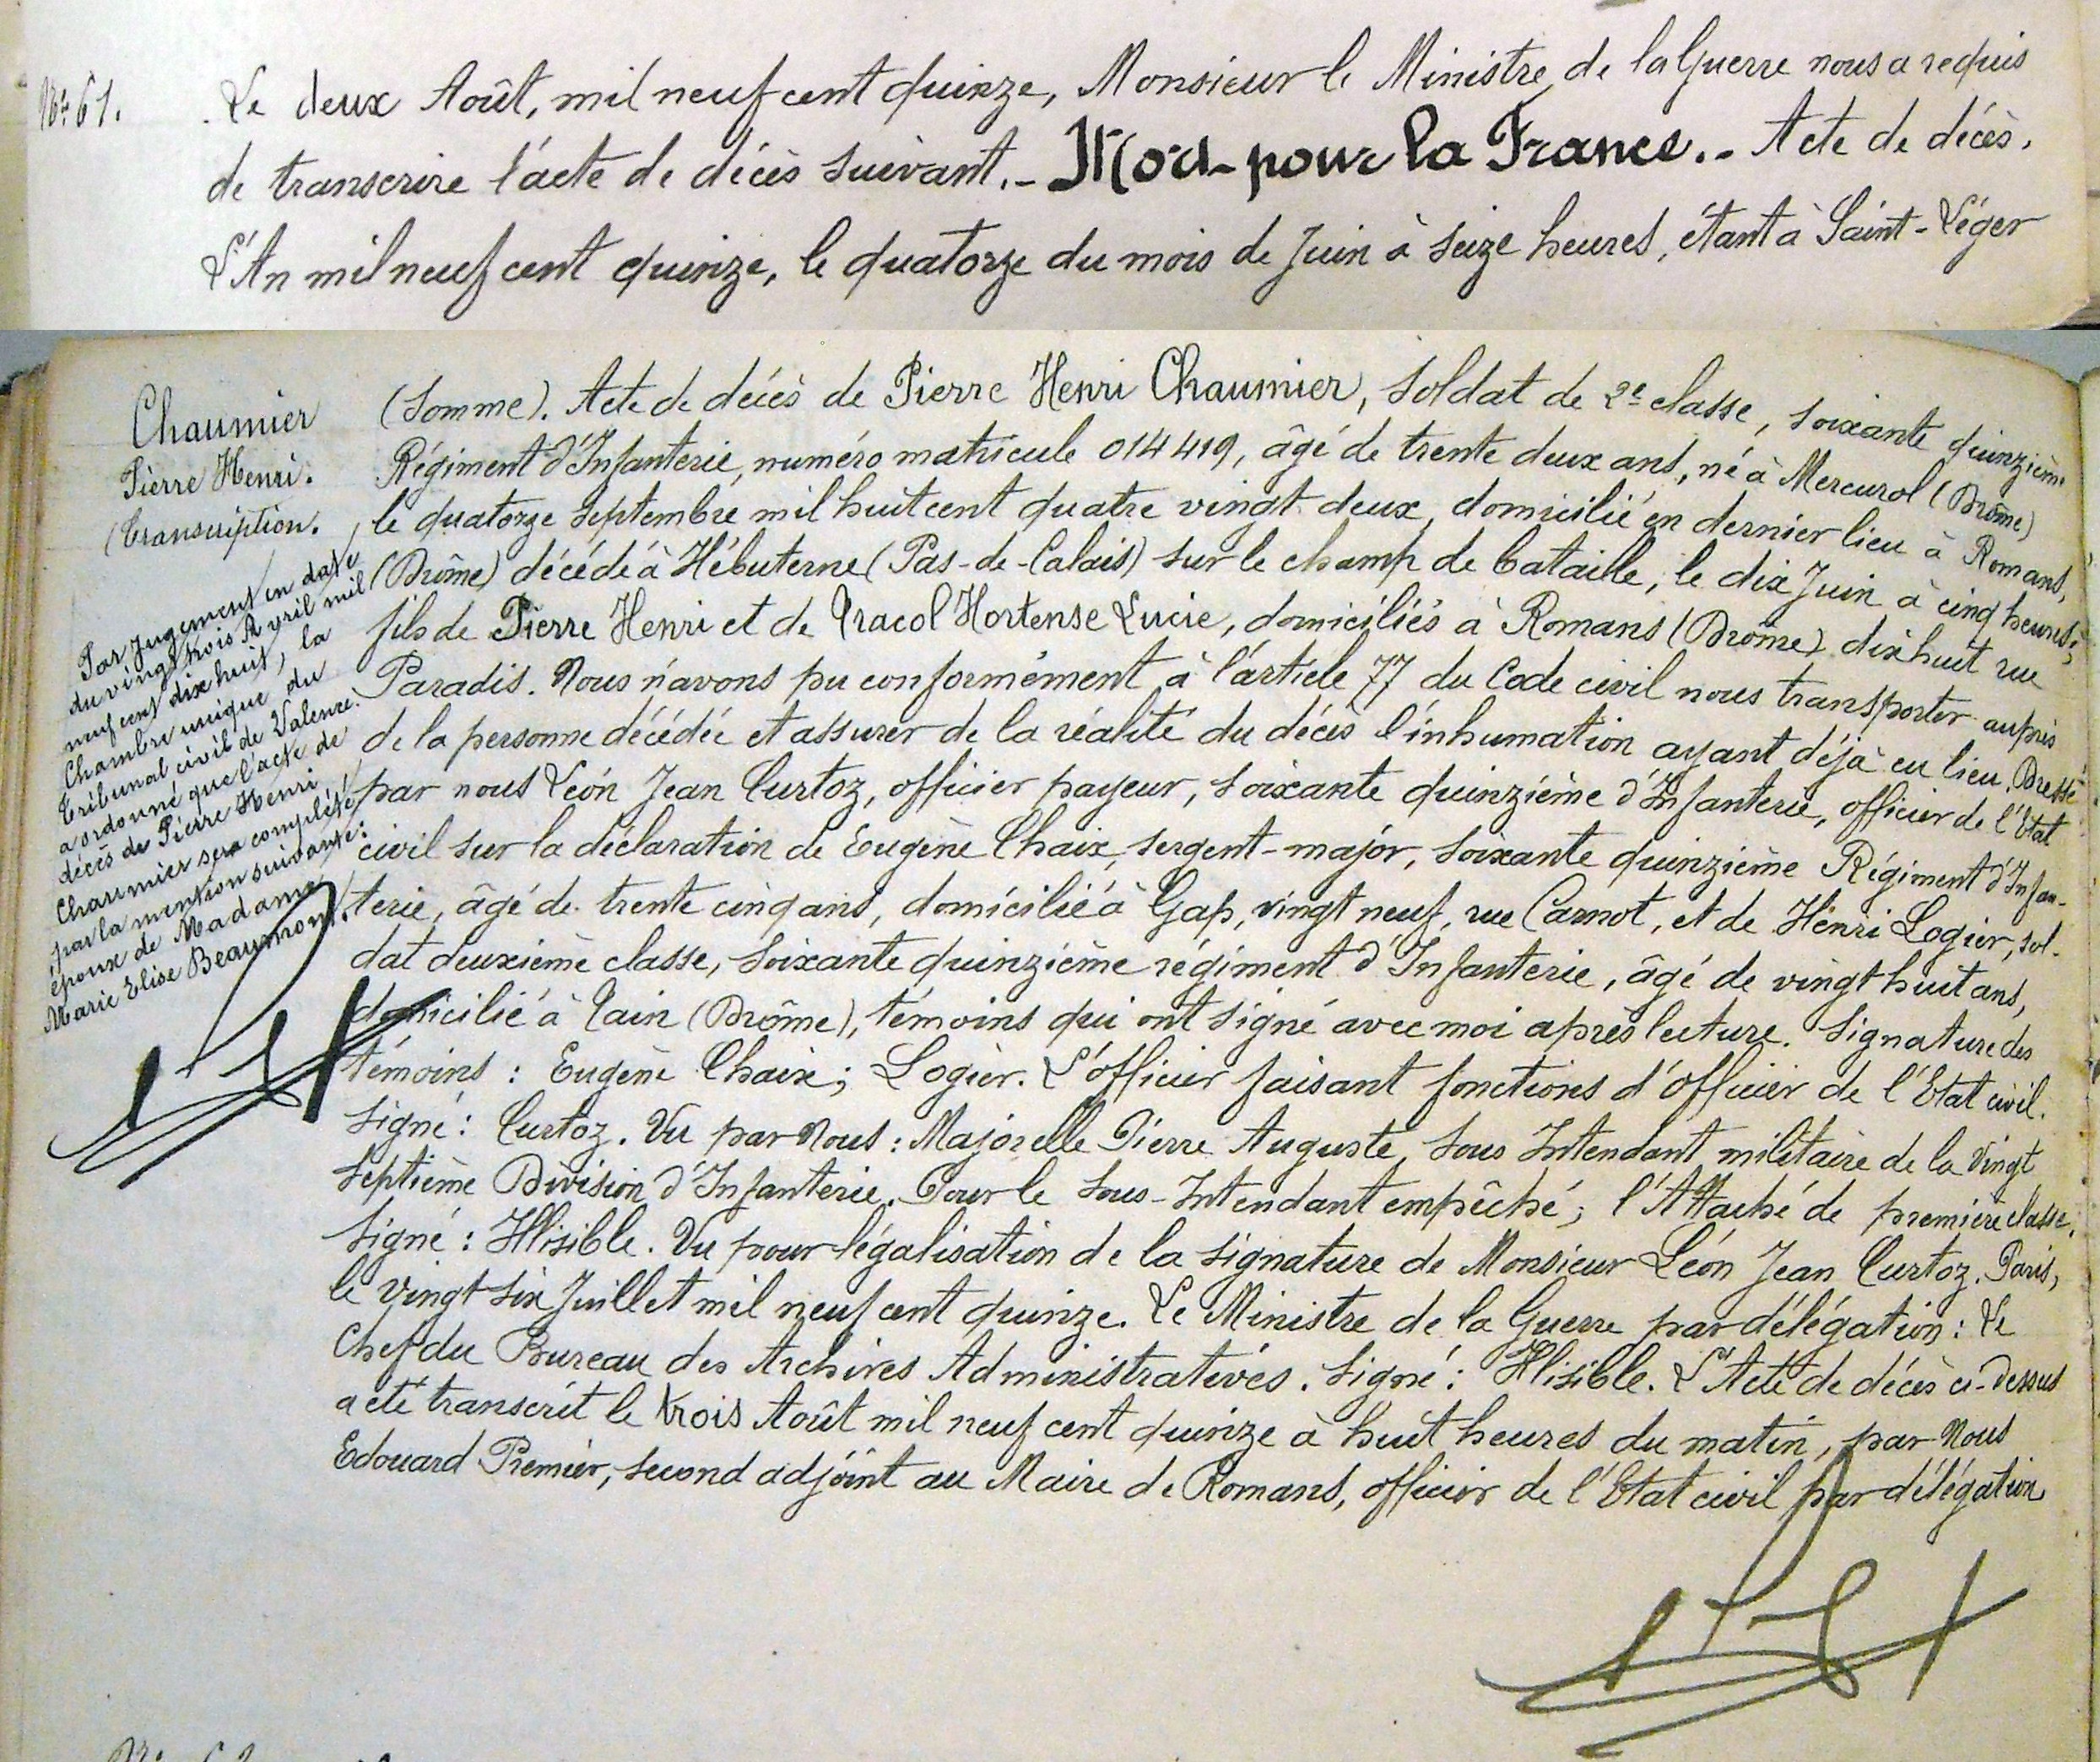 N° 61.
Le deux Août, mil neuf cent quinze, Monsieur le Ministre de la Guerre nous a requis
de transcrire l'acte de décès suivant.- Mort pour la France.- Acte de décès.
L'An mil neuf cent quinze, le quatorze du mois de Juin à seize heures, étant à Saint-Léger
Chaumier
Pierre Henri.
(Transcription.
Par jugement en date
du vingt trois Avril mil
neuf cent dix huit, la
Chambre unique du
Tribunal civil de Valence
a ordonné que l'acte de
décès de Pierre Henri
Chaumier sera complété
par la mention suivante:
époux de Madame
Marie Elise Beaumont.
(Somme). Acte de décès de Pierre Henri Chaumier, soldat de 2e classe, soixante quinzième
Régiment d'Infanterie, numéro matricule 014419, âgé de trente deux ans, né à Mercurol (Drôme)
le quatorze septembre mil huit cent quatre vingt deux, domicilié en dernier lieu à Romans,
(Drôme) décédé à Hébuterne (Pas-de-Calais) sur le champ de bataille, le dix Juin à cinq heures;
fils de Pierre Henri et de Tracol Hortense Lucie, domiciliés à Romans (Drôme) dix huit rue
Paradis. Nous n'avons pu conformément à l'article 77 du Code civil nous transporter auprès
de la personne décédée et assurer de la réalité du décès l'inhumation ayant déjà eu lieu. Dressé
par nous Léon Jean Curtoz, officier payeur, soixante quinzième d'Infanterie, officier de l'Etat
civil sur la déclaration de Eugène Chaix, sergent-major, soixante quinzième Régiment d'Infan-
terie, âgé de trente cinq ans, domicilié à Gap, vingt neuf, rue Carnot, et de Henri Logier, sol-
dat deuxième classe, soixante quinzième régiment d'Infanterie, âgé de vingt huit ans,
domicilié à Tain (Drôme), témoins qui ont signé avec moi après lecture. Signature des
témoins : Eugène Chaix; Logier. L'officier faisant fonctions d'officier de l'Etat civil.
Signé : Curtoz. Vu par Nous : Majorelle Pierre Auguste, Sous Intendant militaire de la vingt
septième Division d'Infanterie. Pour le Sous-Intendant empêché; l'Attaché de première classe.
Signé : Illisible. Vu pour légalisation de la signature de Monsieur Léon Jean Curtoz. Paris,
le vingt six Juillet mil neuf cent quinze. Le Ministre de la Guerre par délégation : Le
Chef du Bureau des Archives Administratives. Signé : Illisible. L'Acte de décès ci-dessus
a été transcrit le trois Août mil neuf cent quinze à huit heures du matin, par Nous
Edouard Premier, second adjoint au Maire de Romans, officier de l'Etat civil par délégation